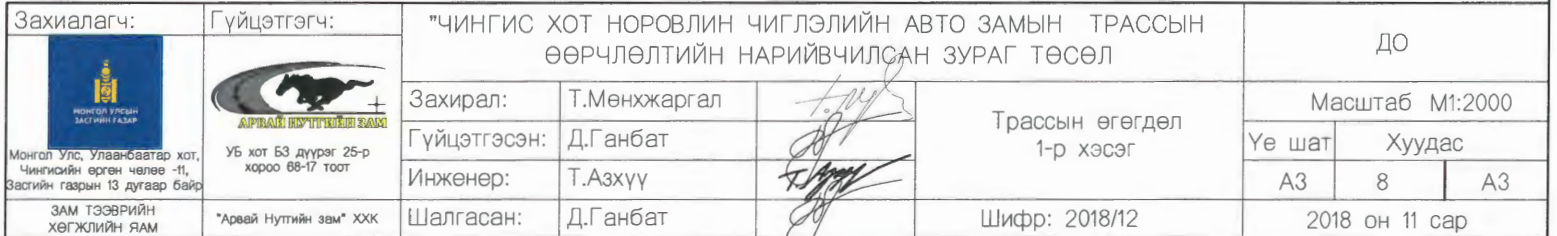 Захиалагч:
МОНГОЛ УЛСЫН
ЗАСГИЙН ГАЗАР
Монгол Улс, Улаанбаатар хот,
Чингисийн өргөн чөлөө -11,
Засгийн газрын 13 дугаар байр
ЗАМ ТЭЭВРИЙН
ХӨГЖЛИЙН ЯАМ
Гүйцэтгэгч:
АРВАЙ НУТГИЙН ЗАМ
УБ хот БЗ дүүрэг 25-р
хороо 68-17 тоот
"Арвай Нутгийн зам" ХХК
"ЧИНГИС ХОТ НОРОВЛИН ЧИГЛЭЛИЙН АВТО ЗАМЫН ТРАССЫН
ӨӨРЧЛӨЛТИЙН НАРИЙВЧИЛСАН ЗУРАГ ТӨСӨЛ
Захирал: Т.Мөнхжаргал
Гүйцэтгэсэн: Д.Ганбат
Инженер: Т.Азхүү
Шалгасан: Д.Ганбат
Трассын өгөгдөл
1-р хэсэг
Шифр: 2018/12
ДО
Масштаб М1:2000
Үе шат Хуудас
А3 8 А3
2018 он 11 сар